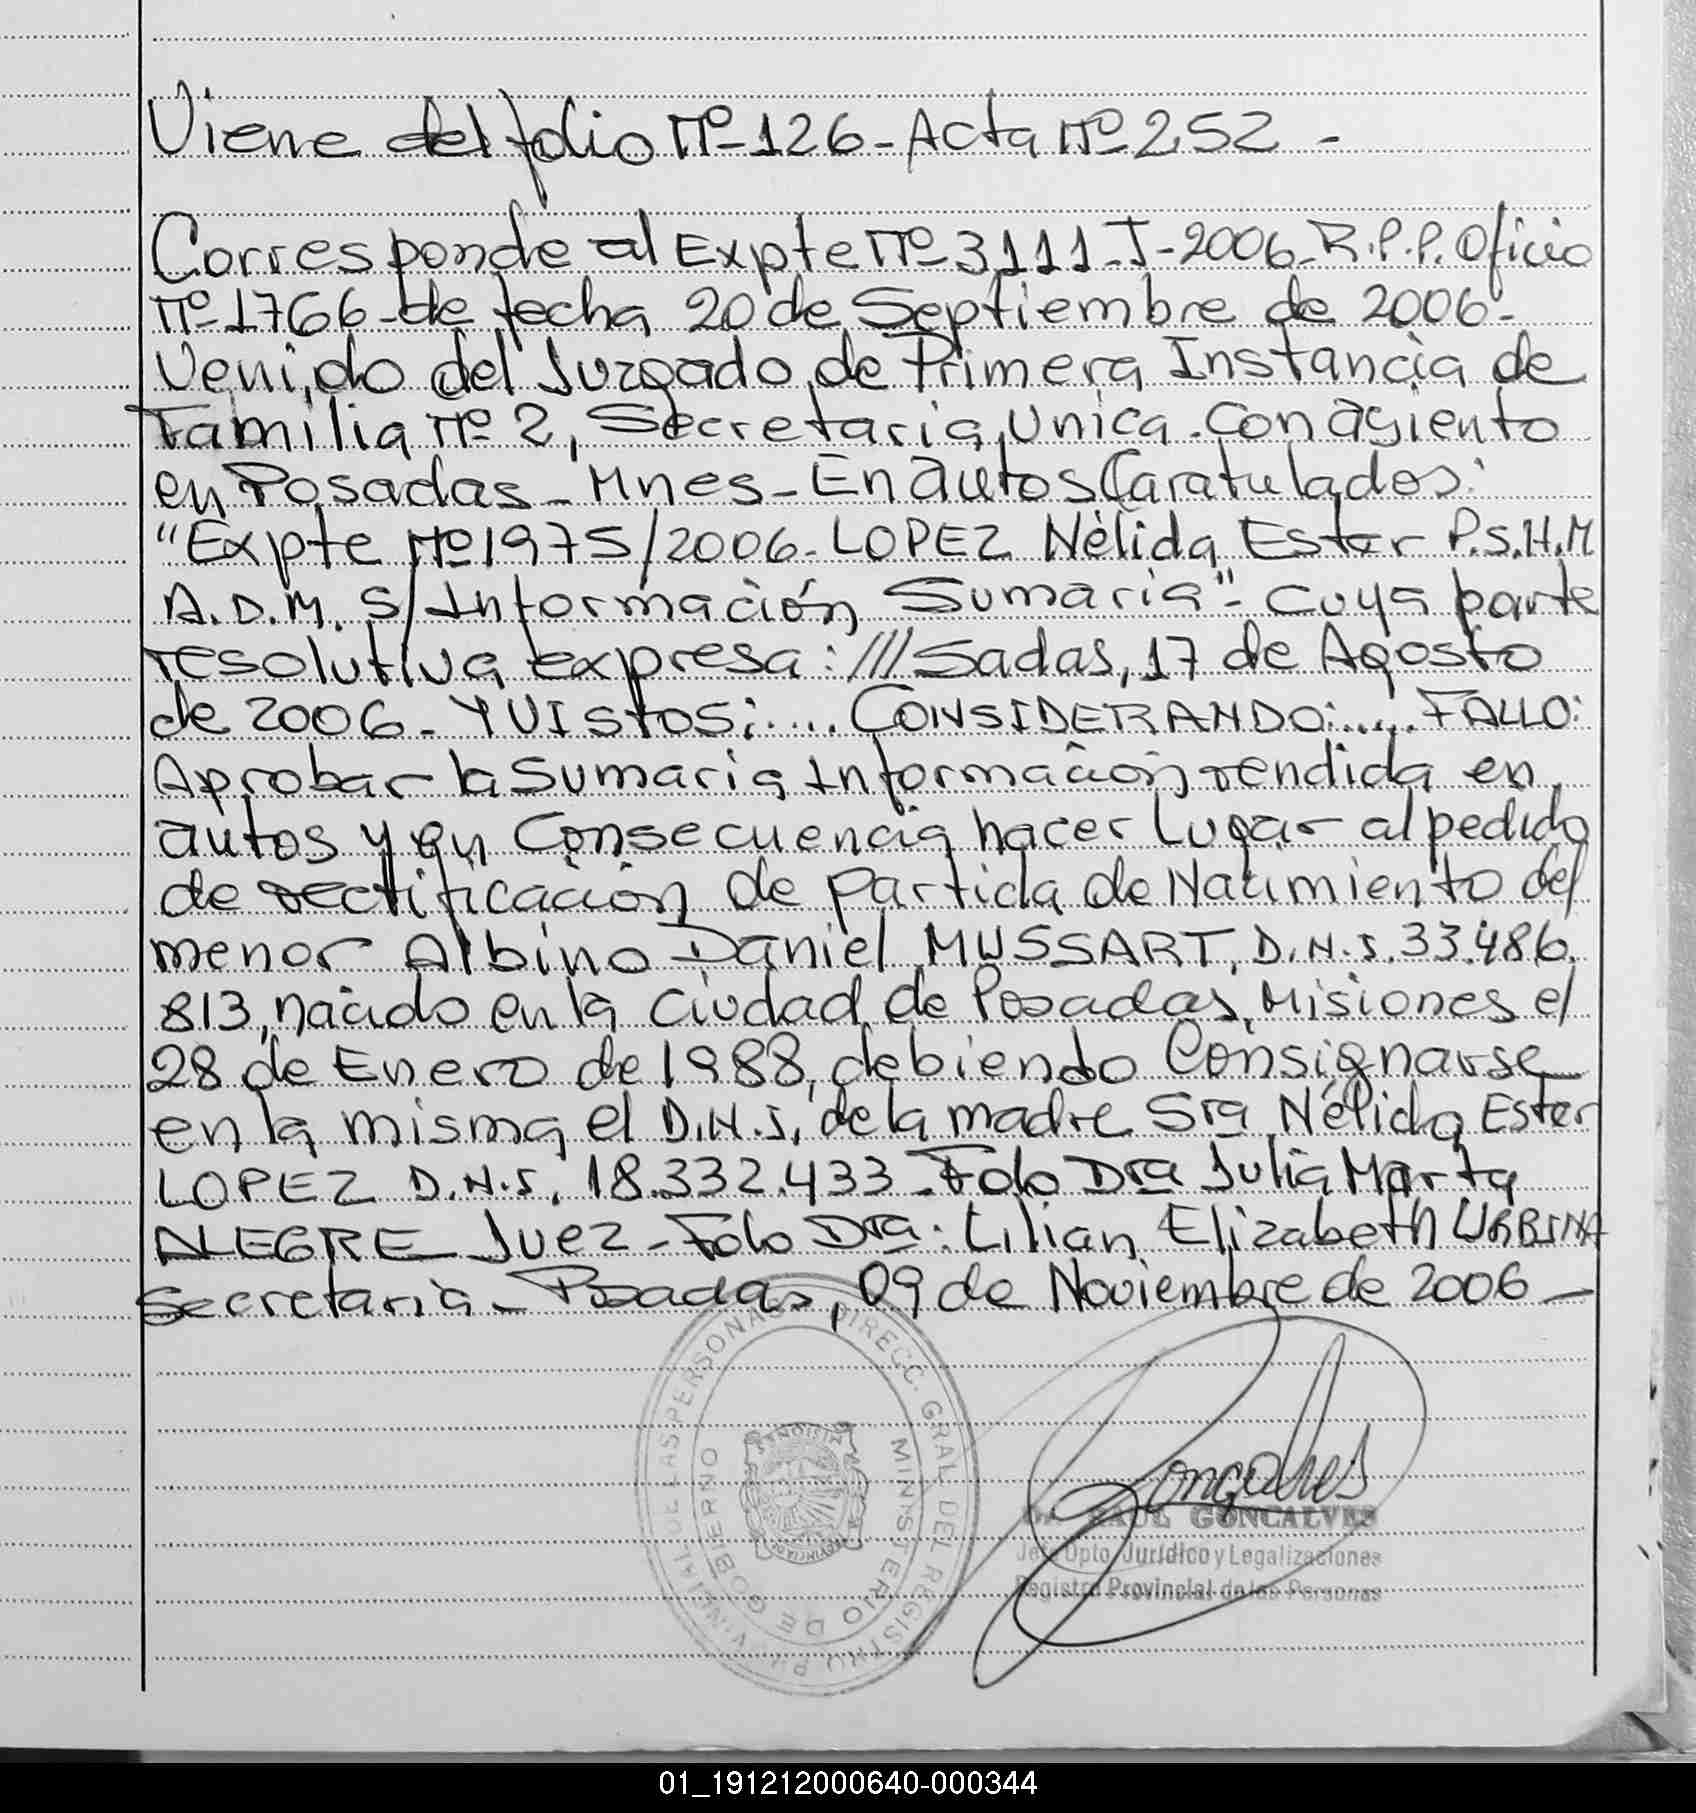 Viene del folio Nº-126-Acta Nº252-
Corresponde al Expte Nº-3111-J-2006-R.P.P. Oficio
Nº-1766-de fecha 20 de Septiembre de 2006-
Venido del Juzgado de Primera Instancia de
Familia Nº-2, Secretaria Unica. Con asiento
en Posadas-Mnes-En autos Caratulados:
"Expte Nº1975/2006-LOPEZ Nélida Ester P.S.H.M
A.D.M. S/Información Sumaria"-cuya parte
resolutiva expresa: ///sadas, 17 de Agosto
de 2006-Y VIStoS:.... CONSIDERANDO:..... FALLO:
Aprobar la Sumaria Información rendida en
autos y en Consecuencia hacer Lugar al pedido
de rectificación de partida de Nacimiento del
menor Albino Daniel MUSSART, D.N.I. 33.486.
813, nacido en la ciudad de Posadas, Misiones el
28 de Enero de 1988, debiendo Consignarse
en la misma el D.N.I. de la madre Sra Nélida Ester
LOPEZ D.N.I. 18.332.433-Fdo Dra Julia Marta
ALEGRE Juez-Fdo Dra: Lilian Elizabeth URBINA
Secretaria-Posadas, 09 de Noviembre de 2006-
DIRECC. GRAL DEL REGISTRO PROVINCIAL DE LAS PERSONAS
MINISTERIO DE GOBIERNO
Gonçalves
Dr. RAUL GONCALVES
Jefe Dpto. Jurídico y Legalizaciones
Registro Provincial de las Personas
01_191212000640-000344